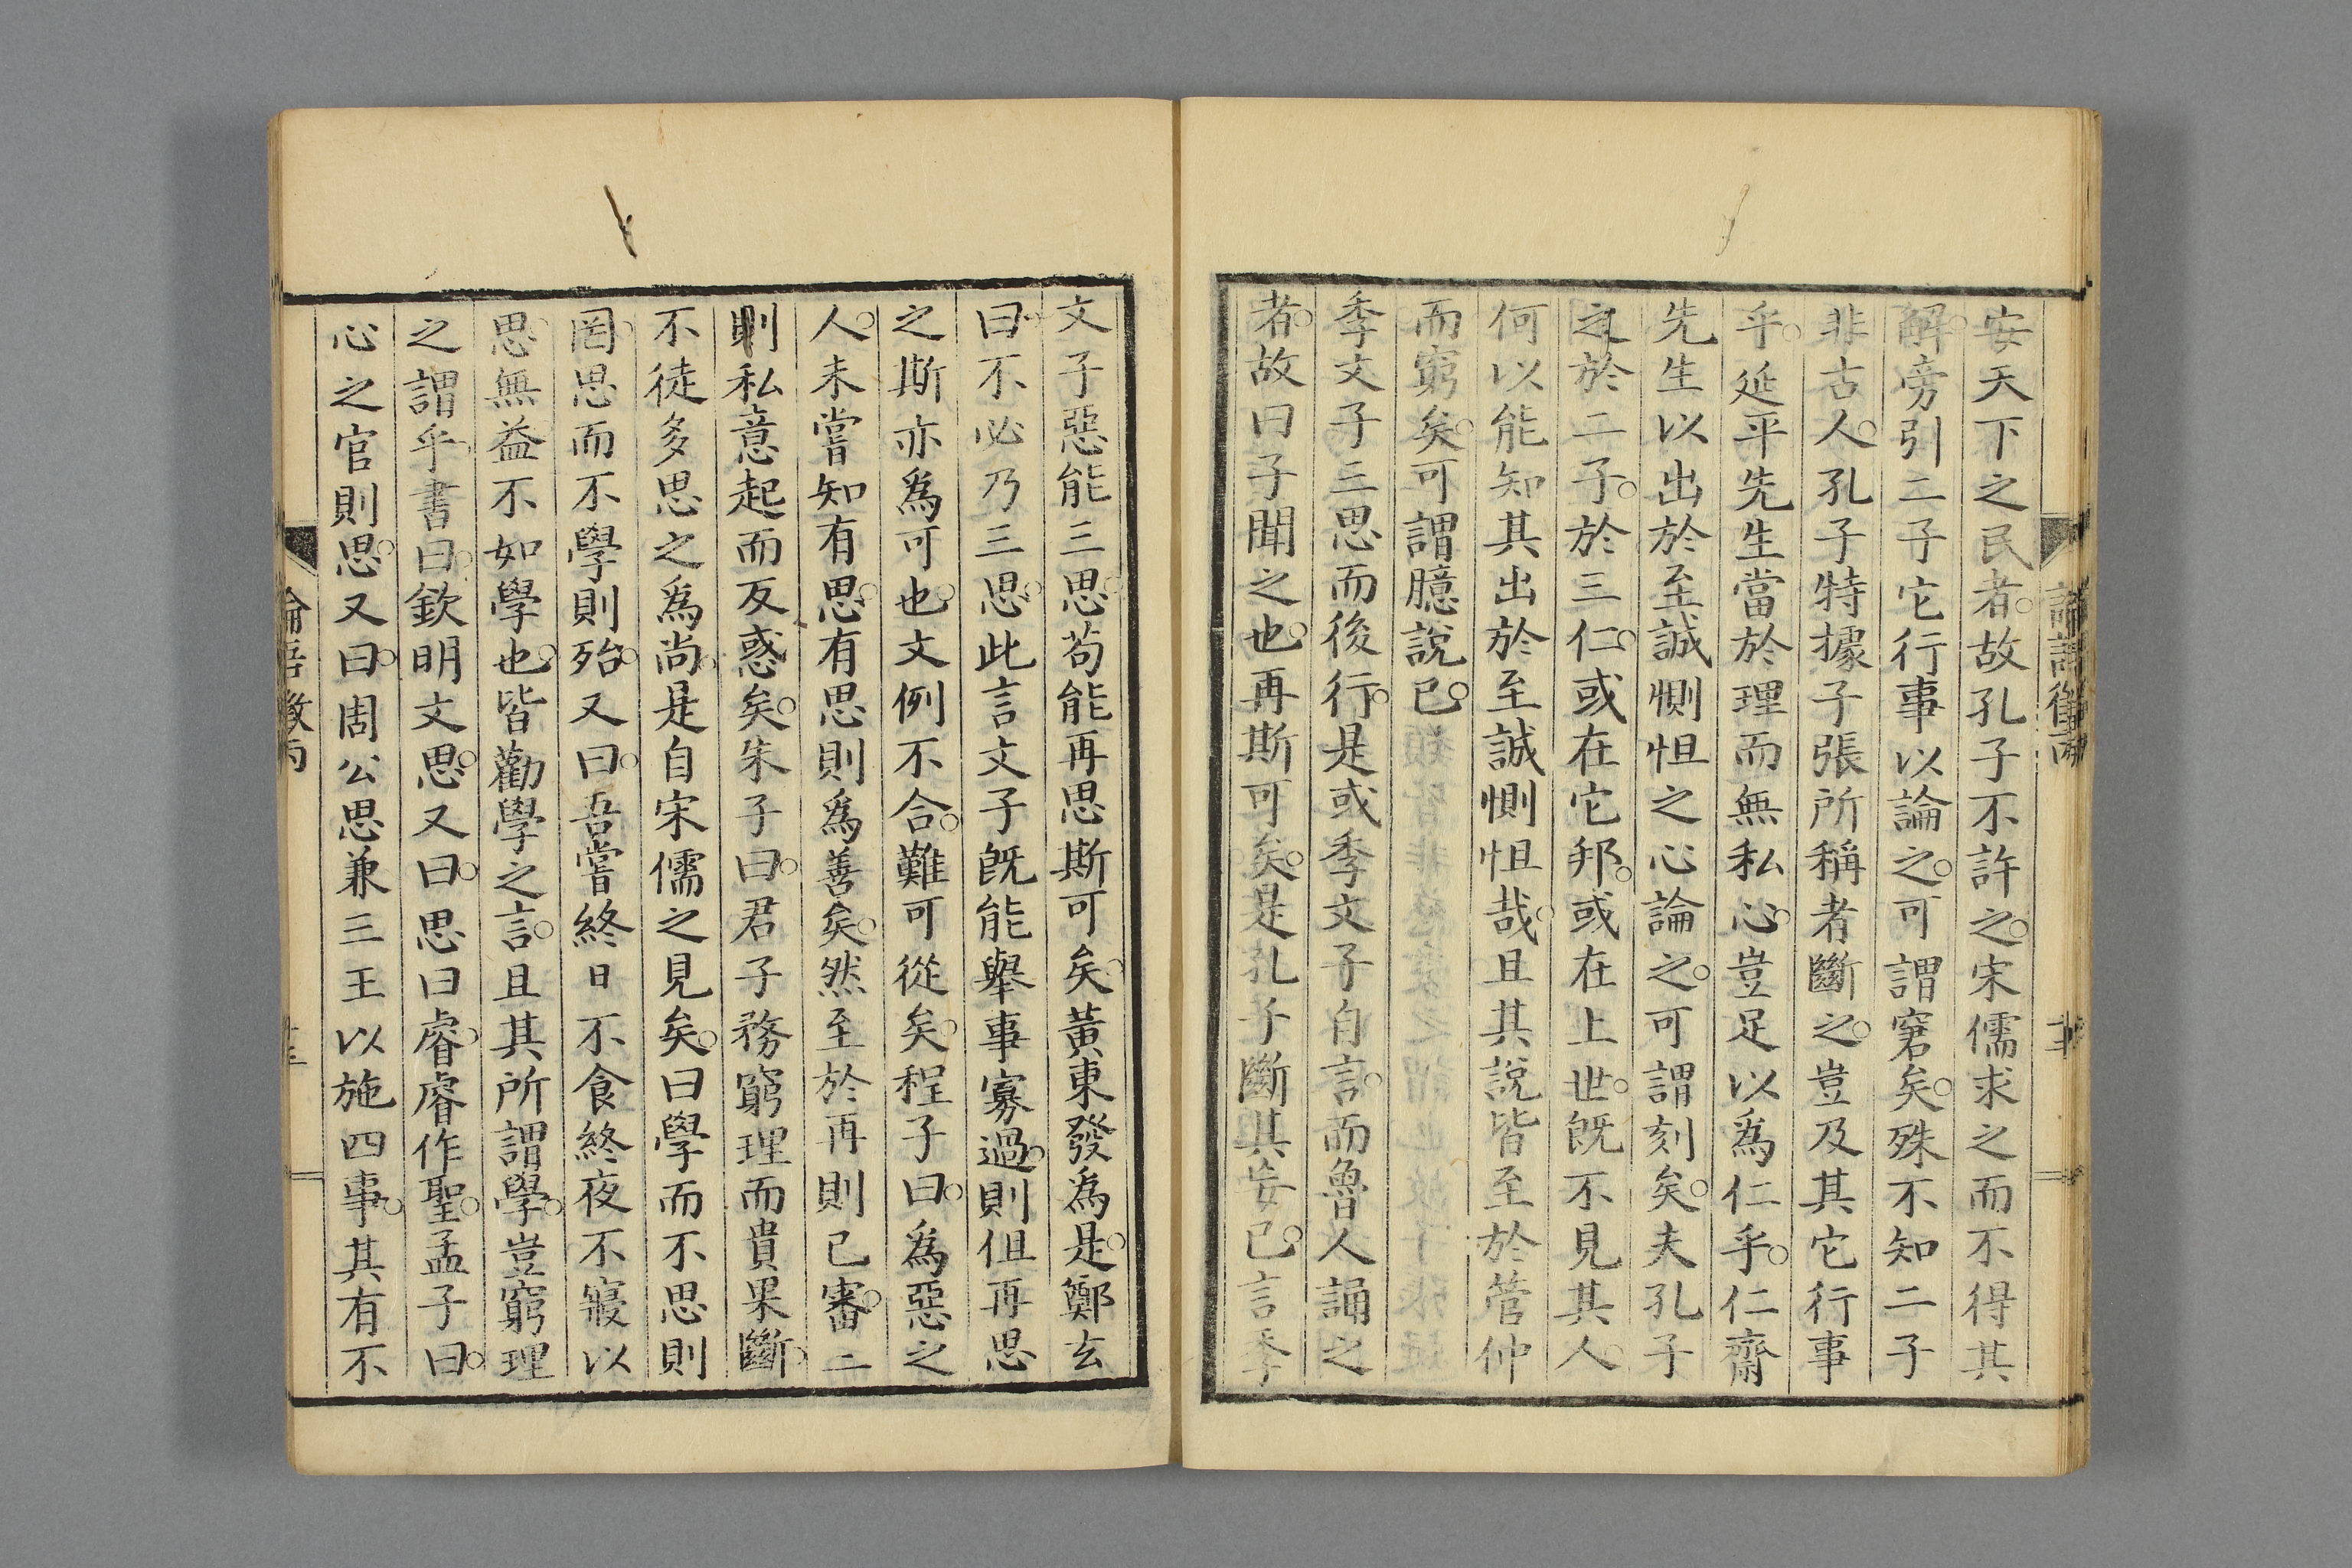 安天下之民者。故孔子不許之。宋儒求之而不得其
解。旁引二子它行事以論之。可謂窘矣。殊不知二子
非古人。孔子特據子張所稱者斷之。豈及其它行事
乎。延平先生當於理而無私心。豈足以為仁乎。仁齋
先生以出於至誠惻怛之心論之。可謂刻矣。夫孔子
之於二子。於三仁。或在它邦。或在上世。既不見其人。
何以能知其出於至誠惻怛哉。且其說皆至於管仲
而窮矣。可謂臆說已。
季文子三思而後行。是或季文子自言。而魯人誦之
者。故曰子聞之也。再斯可矣。是孔子斷其妄已。言季
論語徵丙
文子惡能三思。苟能再思斯可矣。黃東發為是。鄭玄
曰。不必乃三思。此言文子既能舉事寡過。則但再思
之斯亦為可也。文例不合。難可從矣。程子曰。為惡之
人。未嘗知有思。有思則為善矣。然至於再則已審。二
則私意起而反惑矣。朱子曰。君子務窮理而貴果斷。
不徒多思之為尚。是自宋儒之見矣。曰學而不思則
罔。思而不學則殆。又曰。吾嘗終日不食終夜不寢以
思。無益不如學也。皆勸學之言。且其所謂學。豈窮理
之謂乎。書曰。欽明文思。又曰。思曰睿。睿作聖。孟子曰。
心之官則思。又曰。周公思兼三王以施四事。其有不
論語徵丙